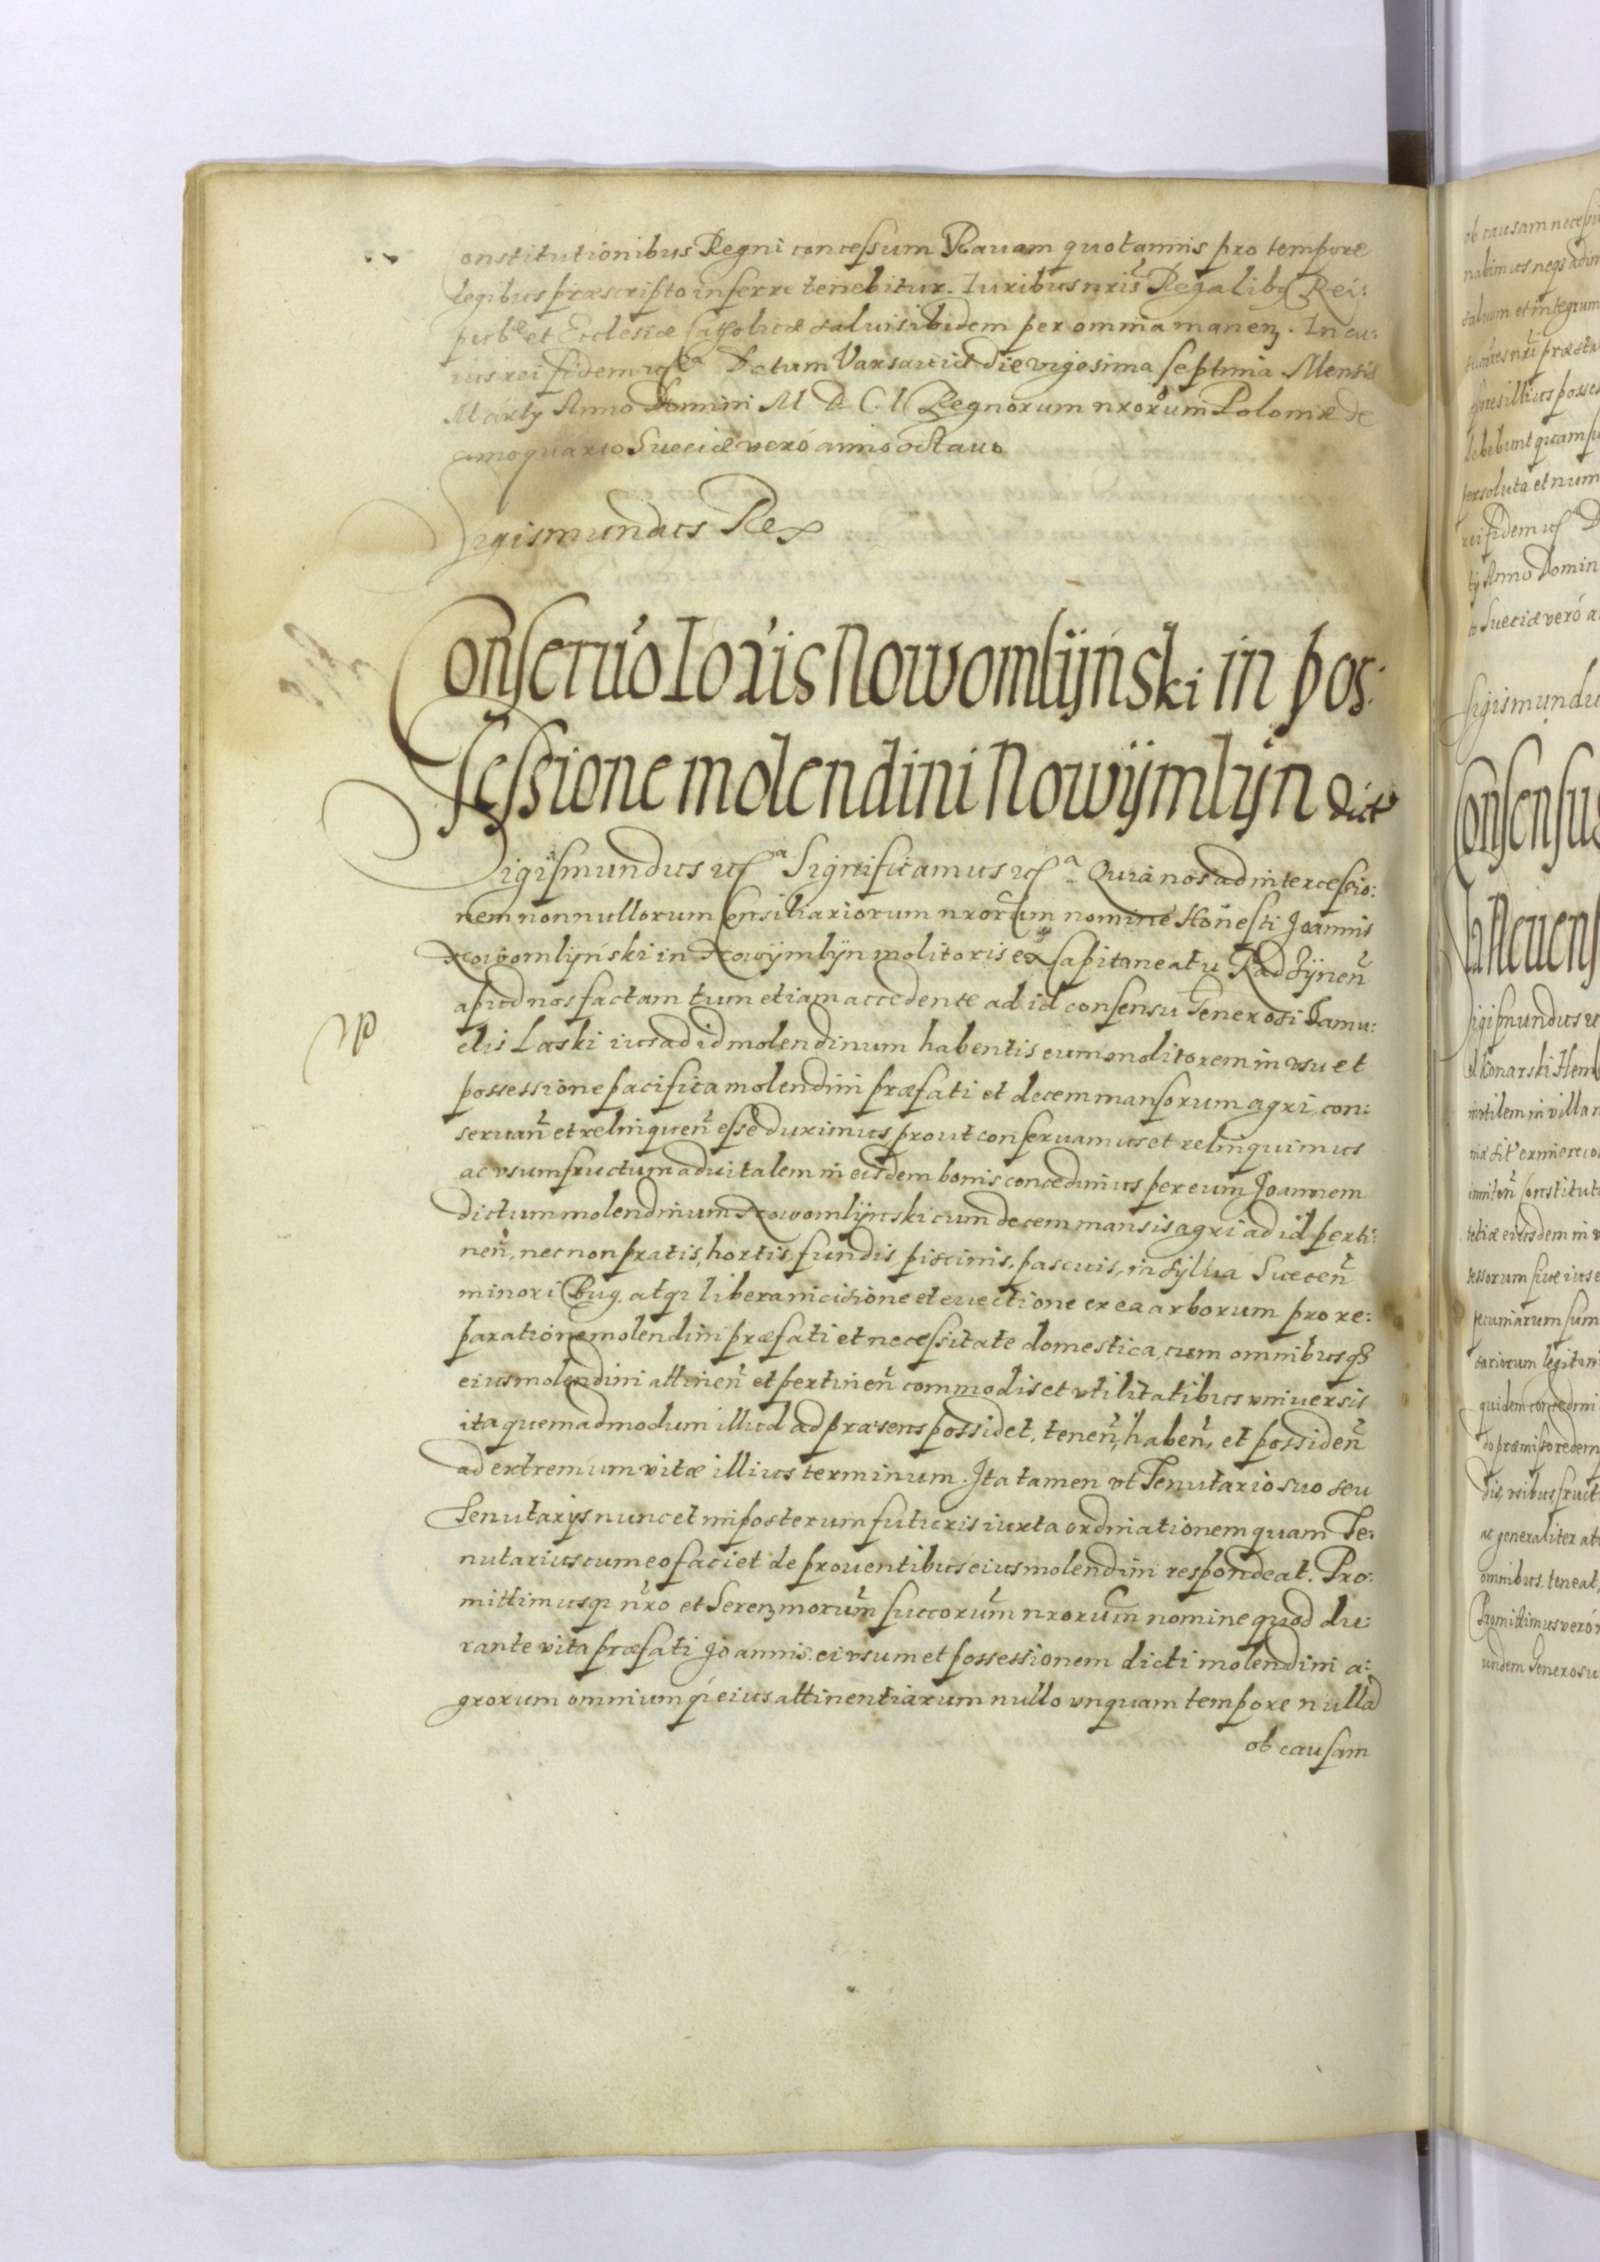 Constitutionibus Regni concessum Rauam quotannis pro tempore
legibus præscripto inferre tenebitur. Iuribus nris Regalibq Rei:
pub et Ecclesiæ Catholicæ saluis ibidem per omnia manen. In cu:
ius rei fidem etc Datum Varsauiæ Die vigesima septima Mensis
Martij Anno Domini M D C I Regnorum nrorum Poloniæ de
cimo quarto Sueciæ veró anno octauo
Sigismundus Rex
Conseruo Iois Nowomlijński in pos:
sessione molendini Nowijmlijn dict
Sigismundus etc Significamus etc Quia nos ad intercessio:
nem nonnullorum Consiliariorum nrorum nomine Honesti Joannis
Nowomlijński in Nowijmlijn molitoris ex Capitaneatu Radzijnen
apud nos factam tum etiam accedente ad id consensu Generosi Samu:
elis Laski ius ad id molendinum habentis eum molitorem in vsu et
possessione pacifica molendini præfati et decem mansorum agri con:
seruan et relinquen esse duximus prout conseruamus et relinquimus
ac vsumfructum aduitalem in eisdem bonis concedimus per eum Joannem
dictum molendinum Nowomlijnski cum decem mansis agri ad id perti:
nen, nec non pratis, hortis, fundis, piscinis, pascuis, in syllua Suecen
minori Bug. atq libera incisione et euectione ex ea arborum pro re:
paratione molendini præfati et necessitate domestica, cum omnibusq
eius molendini attinen et pertinen commodis et vtilitatibus vniuersis
ita quemadmodum illud ad præsens possidet, tenen, haben, et possiden
ad extremum vitæ illius terminum. Ita tamen vt Tenutario suo seu
Tenutarijs nunc et in posterum futuris iuxta ordinationem quam Te:
nutarius cum eo faciet de prouentibus eius molendini respondeat. Pro:
mittimusq nro et Serenmorum succorum nrorum nomine quod du:
rante vita præfati Joannis ei vsum et possessionem dicti molendini a:
grorum omniumq eius attinentiarum nullo vnquam tempore nulla
ob causam